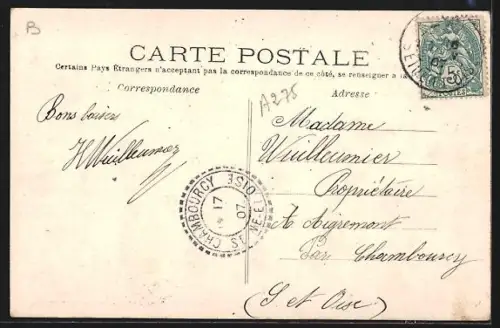 B
CARTE POSTALE
Certains Pays Étrangers n'acceptant pas la correspondance de ce côté, se renseigner à la
Correspondance
Adresse
A275
Bons baisers
HWuilleumier
Madame
Wuilleumier
Propriétaire
A Aigremont
Par Chambourcy
(S et Oise)
CHAMBOURCY
SEINE-ET-OISE
17
07
5